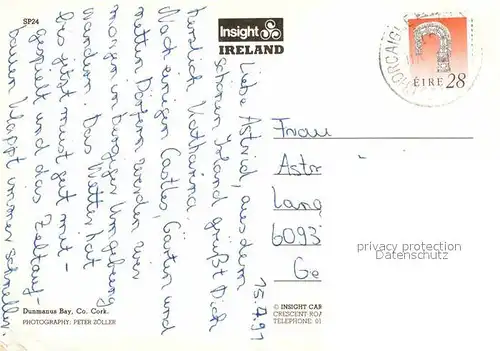 SP24
Insight
IRELAND
ORCAIGH
ÉIRE 28
15.7.91
Liebe Astrid, aus dem
schönen Irland grüßt Dich
herzlich Katharina.
Nach einigen Castles, Gärten und
netten Dörfern werden wir
morgen in Umgebung
wandern. Das Wetter hat
bis jetzt meist gut mit-
gespielt und das Zeltauf-
bauen klappt immer schneller.
Frau
Astr
Lang
6093
Ge
privacy protection
Datenschutz
Dunmanus Bay, Co. Cork.
PHOTOGRAPHY: PETER ZÖLLER
© INSIGHT CAR
CRESCENT ROA
TELEPHONE: 01